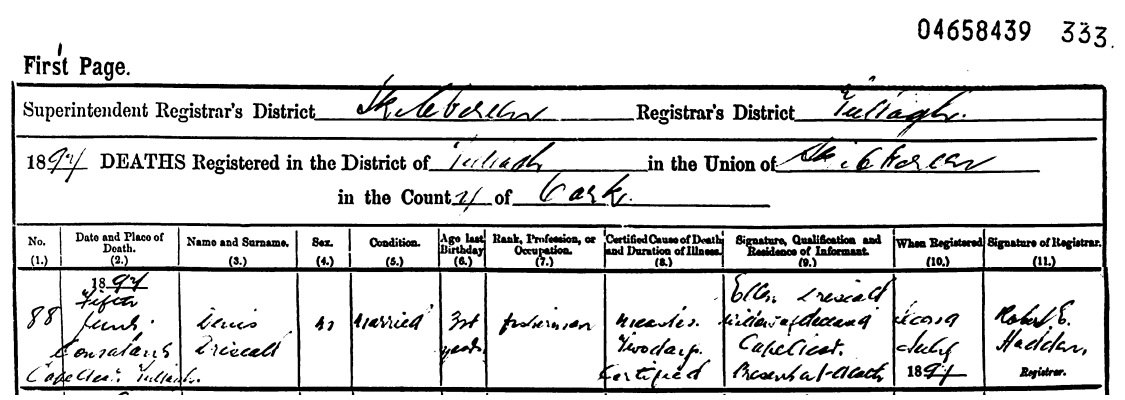 04658439 333.
First Page.
Superintendent Registrar's District Skibbereen Registrar's District Tullagh.
1894 DEATHS Registered in the District of Tullagh in the Union of Skibbereen
in the County of Cork.
No. (1.) Date and Place of Death. (2.) Name and Surname. (3.) Sex. (4.) Condition. (5.) Age last Birthday (6.) Rank, Profession, or Occupation. (7.) Certified Cause of Death and Duration of Illness. (8.) Signature, Qualification and Residence of Informant. (9.) When Registered (10.) Signature of Registrar. (11.)
1894
Fifth Ellen Driscoll
88 June. Denis M Married 31 fisherman Measles. widow of deceased Second Robert E.
Driscoll years Two days. Cape Clear. July Haddon,
Cape Clear. Tullagh. Certified Present at death 1894 Registrar.